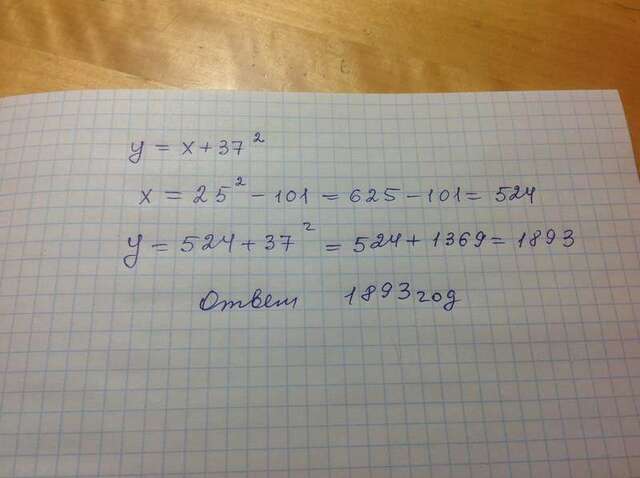 y = x + 37²
x = 25² - 101 = 625 - 101 = 524
y = 524 + 37² = 524 + 1369 = 1893
Ответ 1893 год